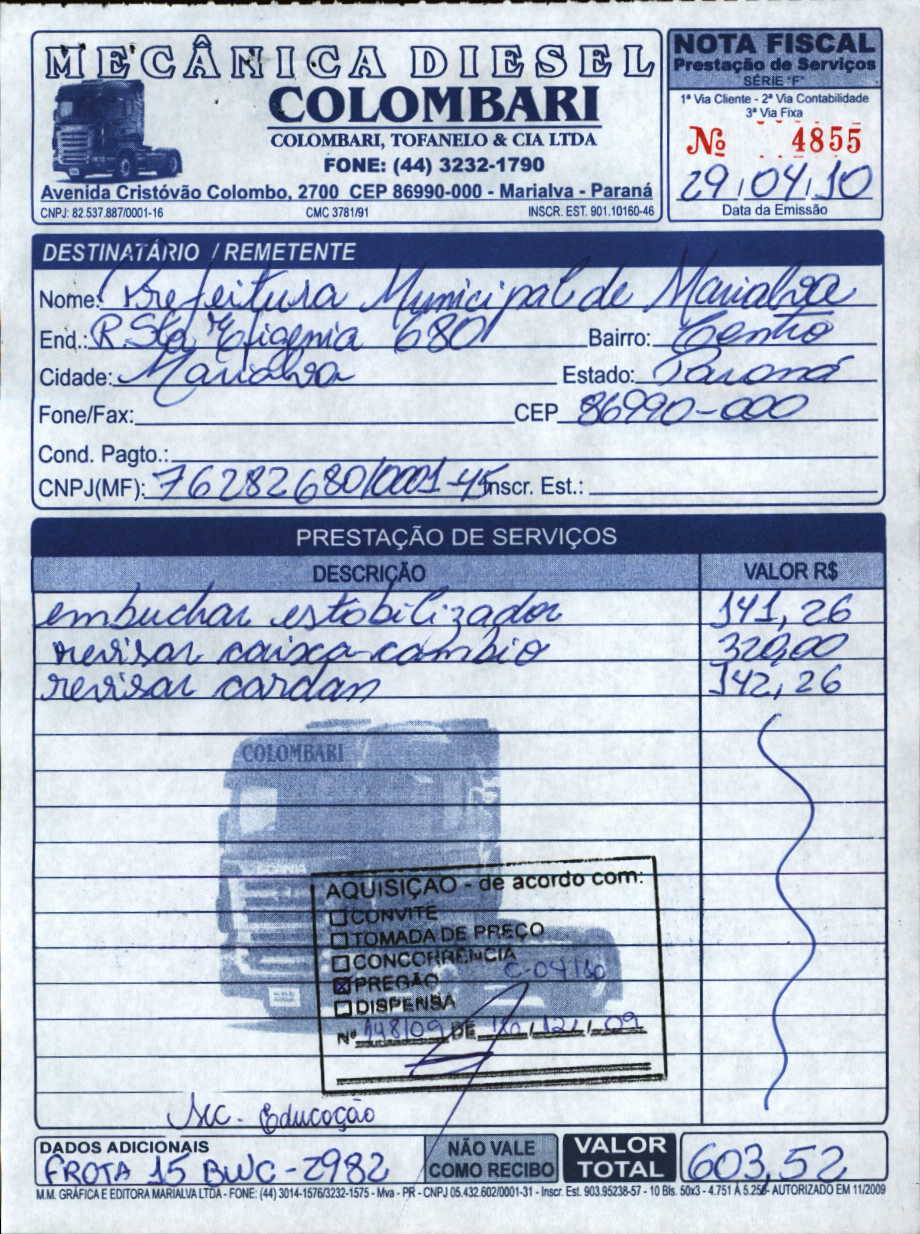 MECÂNICA DIESEL
COLOMBARI
COLOMBARI, TOFANELO & CIA LTDA
FONE: (44) 3232-1790
Avenida Cristóvão Colombo, 2700 CEP 86990-000 - Marialva - Paraná
CNPJ: 82.537.887/0001-16 CMC 3781/91 INSCR. EST. 901.10160-46
NOTA FISCAL
Prestação de Serviços
SÉRIE "F"
1ª Via Cliente - 2ª Via Contabilidade
3ª Via Fixa
Nº 4855
29/04/10
Data da Emissão
DESTINATÁRIO / REMETENTE
Nome: Prefeitura Municipal de Marialva
End.: R. Sta Efigenia 680 Bairro: Centro
Cidade: Marialva Estado: Paraná
Fone/Fax: CEP 86990-000
Cond. Pagto.:
CNPJ(MF): 76282680/0001-45 Inscr. Est.:
PRESTAÇÃO DE SERVIÇOS
DESCRIÇÃO VALOR R$
embuchar estabilizador 141,26
revisar caixa cambio 320,00
revisar cardan 142,26
COLOMBARI
AQUISIÇÃO - de acordo com:
CONVITE
TOMADA DE PREÇO
CONCORRÊNCIA
PREGÃO C-04/80
DISPENSA
Nº 148/09 DE /12/09
Sec. Educação
DADOS ADICIONAIS
FROTA 15 BWC-2982
NÃO VALE
COMO RECIBO
VALOR
TOTAL
603,52
M.M. GRÁFICA E EDITORA MARIALVA LTDA - FONE: (44) 3014-1576/3232-1575 - Mva - PR - CNPJ 05.432.602/0001-31 - Inscr. Est. 903.95238-57 - 10 Bls. 50x3 - 4.751 À 5.250 - AUTORIZADO EM 11/2009